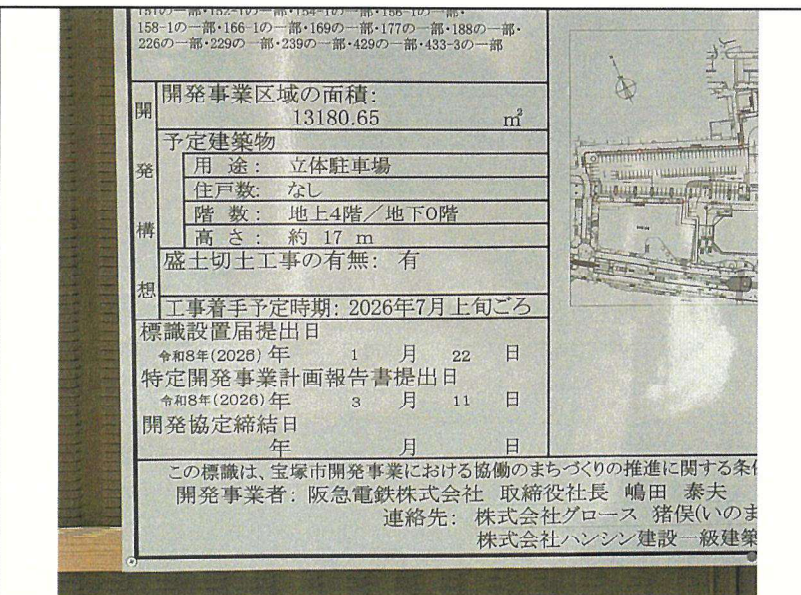 151の一部・152-1の一部・154-1の一部・156-1の一部・
158-1の一部・166-1の一部・169の一部・177の一部・188の一部・
226の一部・229の一部・239の一部・429の一部・433-3の一部
開発構想
開発事業区域の面積:
13180.65 ㎡
予定建築物
用 途: 立体駐車場
住戸数: なし
階 数: 地上4階/地下0階
高 さ: 約 17 m
盛土切土工事の有無: 有
工事着手予定時期: 2026年7月上旬ごろ
標識設置届提出日
令和8年(2026) 年 1 月 22 日
特定開発事業計画報告書提出日
令和8年(2026) 年 3 月 11 日
開発協定締結日
年 月 日
この標識は、宝塚市開発事業における協働のまちづくりの推進に関する条
開発事業者: 阪急電鉄株式会社 取締役社長 嶋田 泰夫
連絡先: 株式会社グロース 猪俣(いのま
株式会社ハンシン建設一級建築